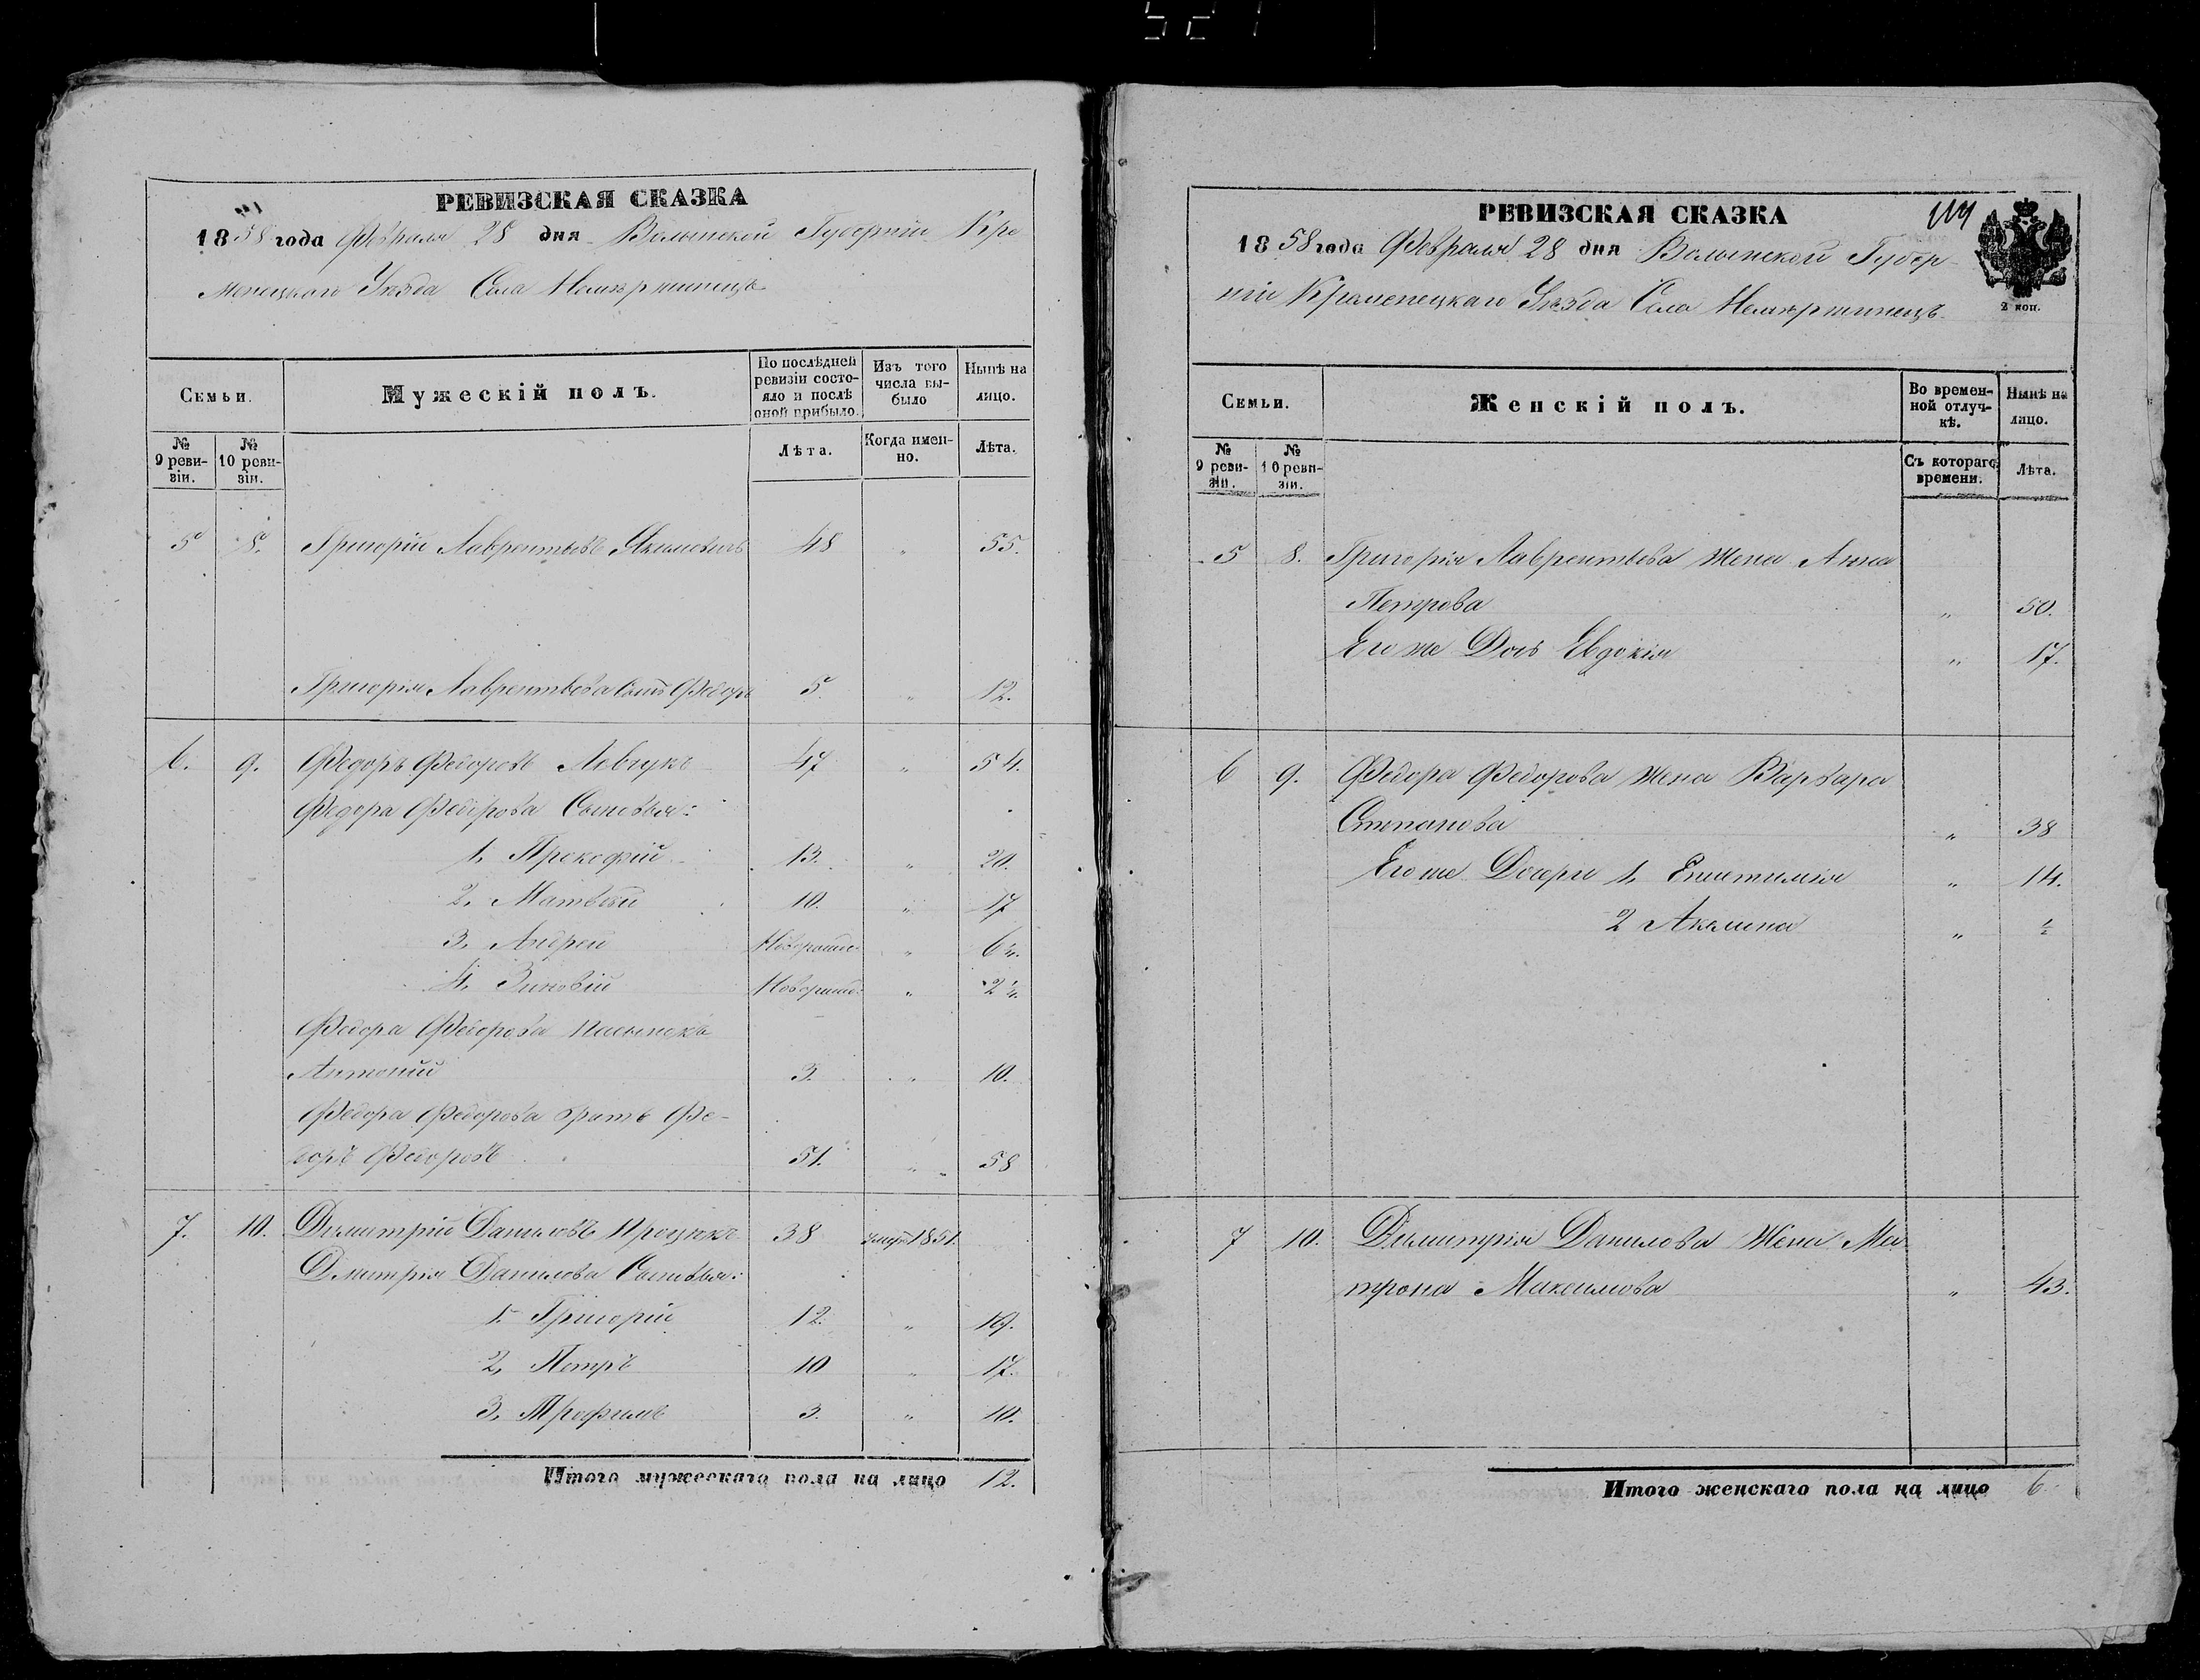 РЕВИЗСКАЯ СКАЗКА
1858 года Февраля 28 дня Волынской Губерніи Кре
менецкого Уѣзда Села
Семьи.
Мужескій полъ.
По послѣдней ревизіи состояло и послѣ оной прибыло.
Изъ того числа выбыло
Нынѣ на лицо.
№ 9 ревизіи.
№ 10 ревизіи.
Лѣта.
Когда именно.
Лѣта.
5 8. Григорій Лаврентьевъ Якимовичъ 48 „ 55.
Григорія Лаврентьева Сынъ Федоръ 5. „ 12.
6. 9. Федоръ Федоровъ Левчукъ 47 „ 54.
Федора Федорова Сыновья:
1, Прокофій 13. „ 20.
2, Матвей 10. „ 17
3, Андрей Новорожде: „ 6
4, Зиновій Новорожд: „ 2
Федора Федорова пасынокъ
Антоній 3. „ 10.
Федора Федорова братъ Фе-
доръ Федоровъ 51. „ 58
7. 10. Димитрій Даниловъ Процюкъ 38 умеръ 1851.
Дмитрія Данилова Сыновья:
1. Григорій 12. „ 19.
2, Петръ 10 „ 17.
3, Трофимъ 3. „ 10.
Итого мужескаго пола на лицо 12.
РЕВИЗСКАЯ СКАЗКА
114
1858 года Февраля 28 дня Волынской Губер-
ніи Кременецкаго Уѣзда Села
2 коп.
Семьи.
Женскій полъ.
Во временной отлучкѣ.
Нынѣ на лицо.
№ 9 ревизіи.
№ 10 ревизіи.
Съ котораго времени.
Лѣта.
5 8. Григорія Лаврентьева Жена Анна
Петрова „ 50.
Его же Дочь Евдокія „ 17.
6 9. Федора Федорова Жена Варвара
Степанова „ 38
Его же Дочери 1, Епистимія „ 14.
2 Акилина „ ½
7 10. Димитрія Данилова Жена Ма
трона Максимова „ 43.
Итого женскаго пола на лицо 6.